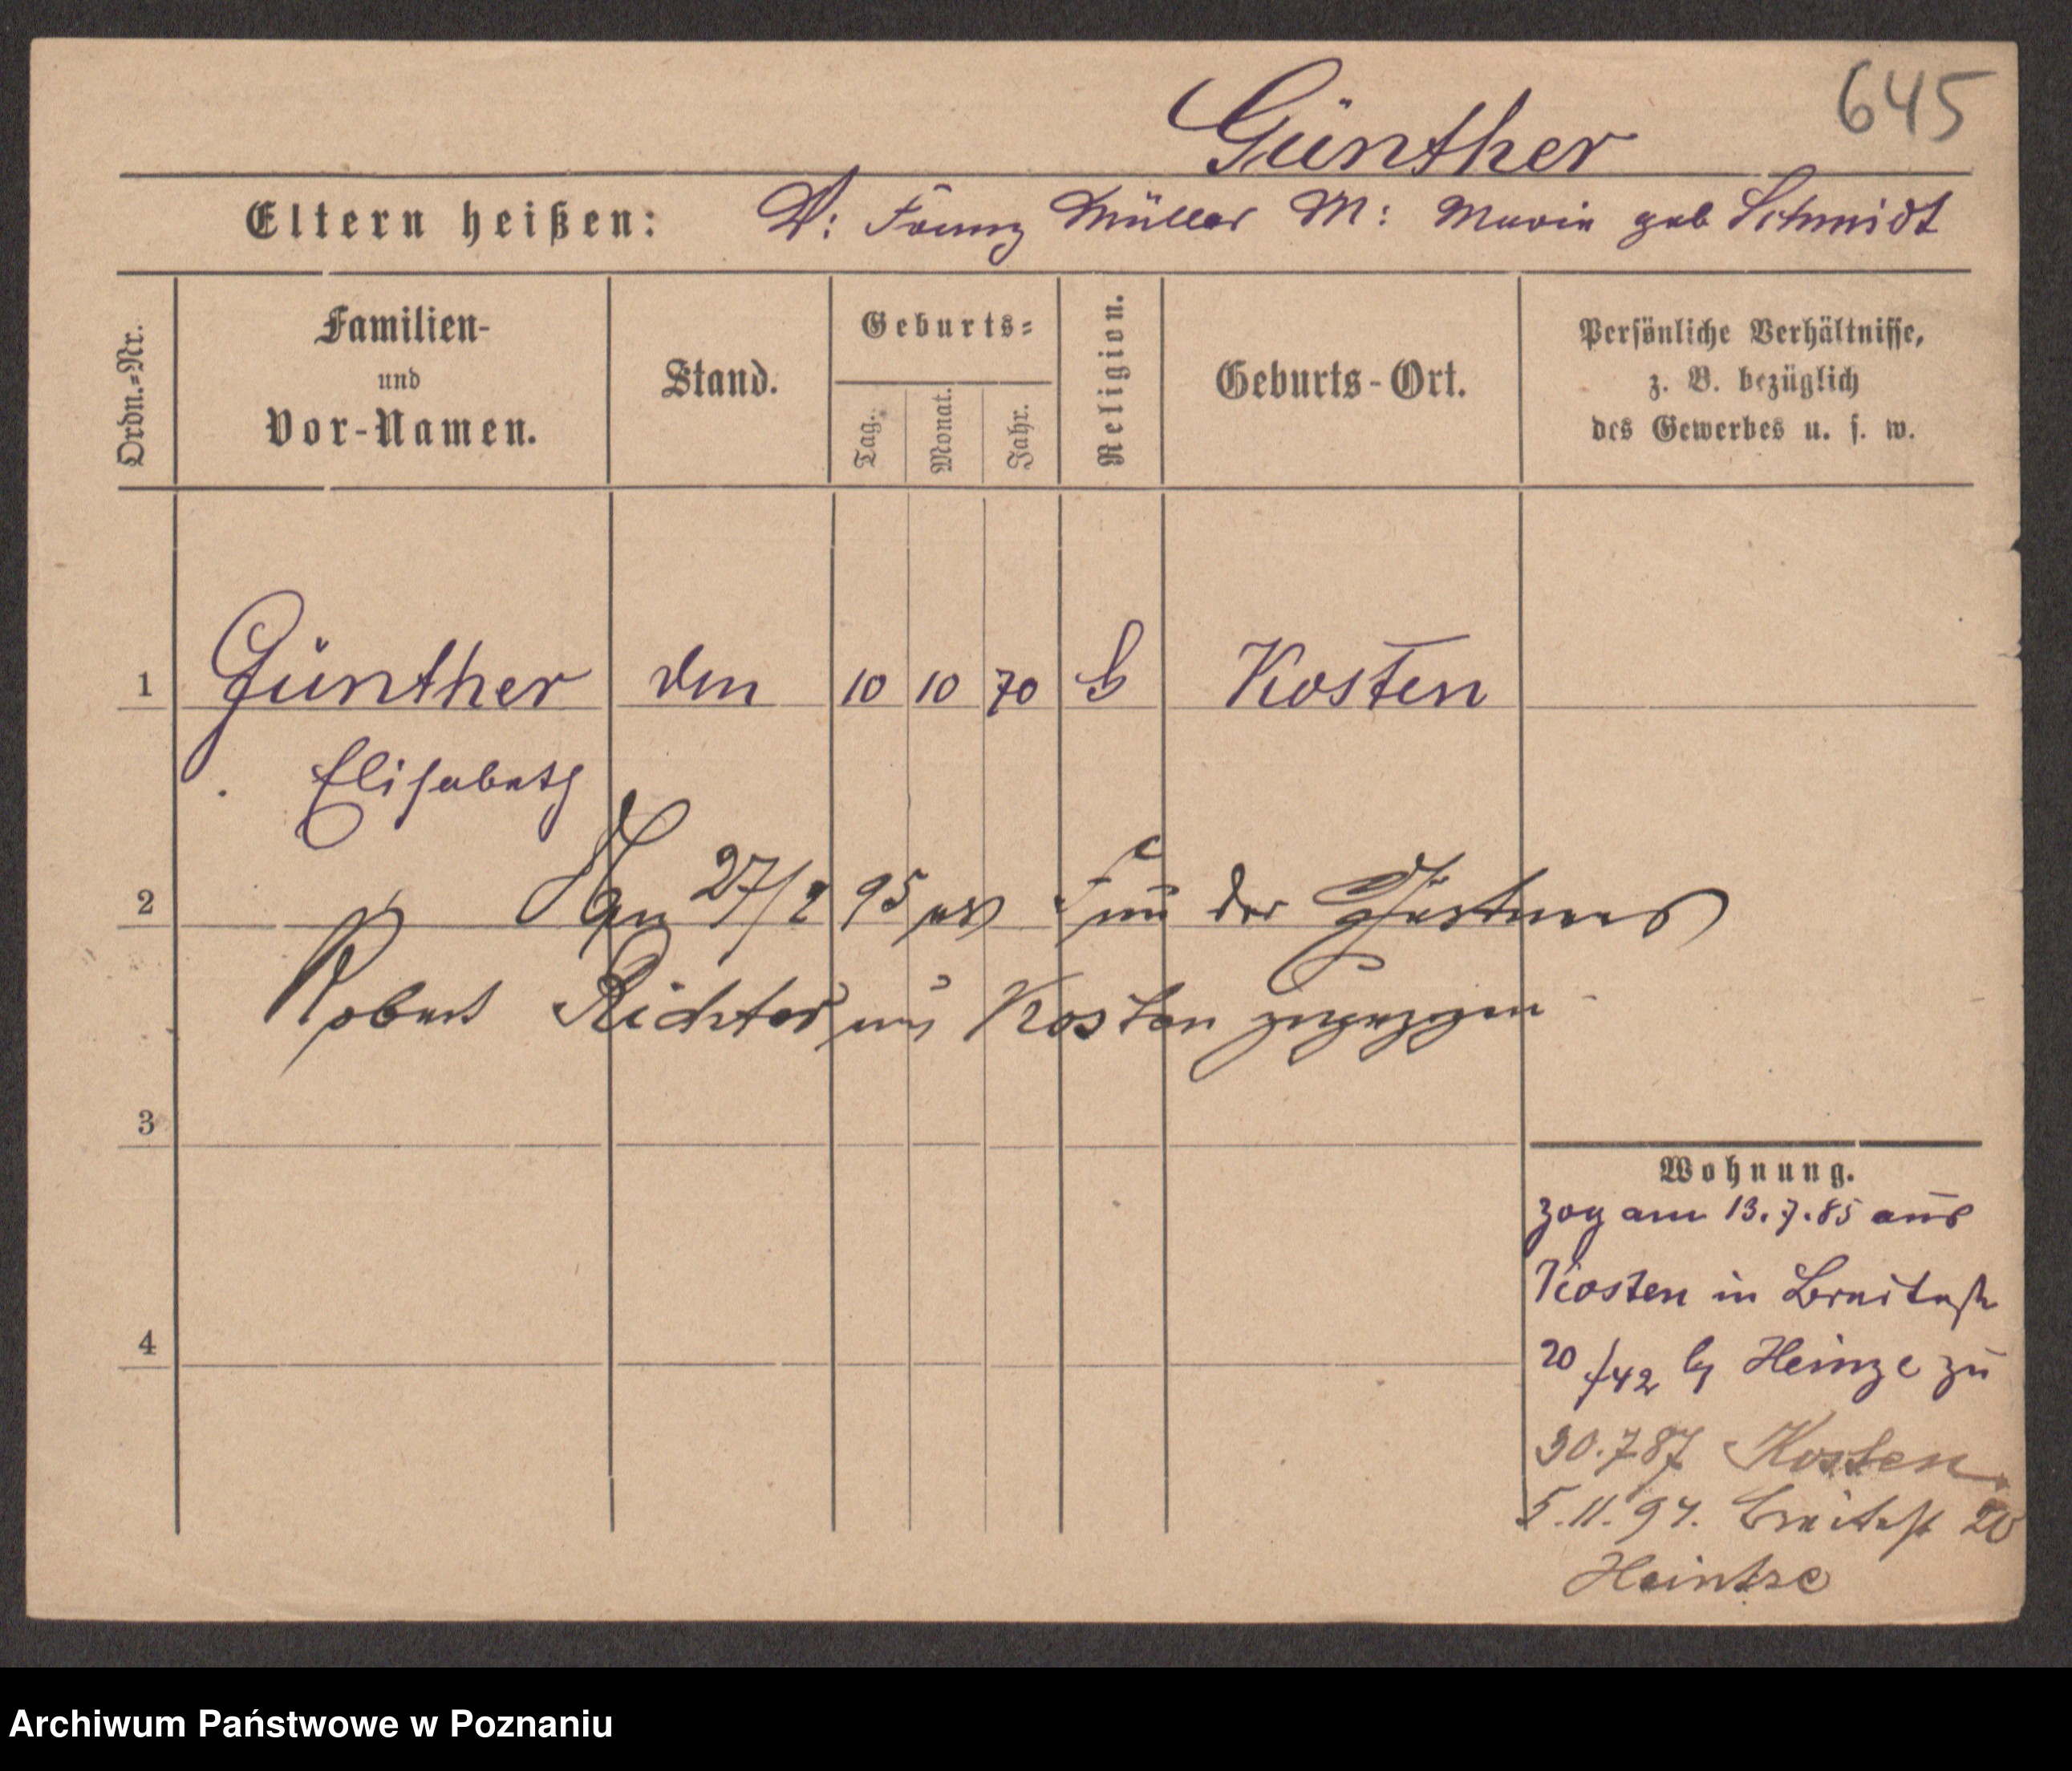 645
Günther
Eltern heißen: V: Franz Müller M: Maria geb Schmidt
Ordn.=Nr.
Familien-
und
Vor-Namen.
Stand.
Geburts=
Tag.
Monat.
Jahr.
Religion.
Geburts-Ort.
Persönliche Verhältnisse,
z. B. bezüglich
des Gewerbes u. s. w.
1 Günther 10 10 70 Kosten
Elisabeth
2 27/2 95 als Frau der Gärtners
Robert Richter nach Kosten zugezogen
3
Wohnung.
zog am 13.7.85 aus
Kosten in Breitestr
20/42 by Heinze zu
4
30.7.87 Kosten
5.11.94. Breitestr 20
Heintze
Archiwum Państwowe w Poznaniu